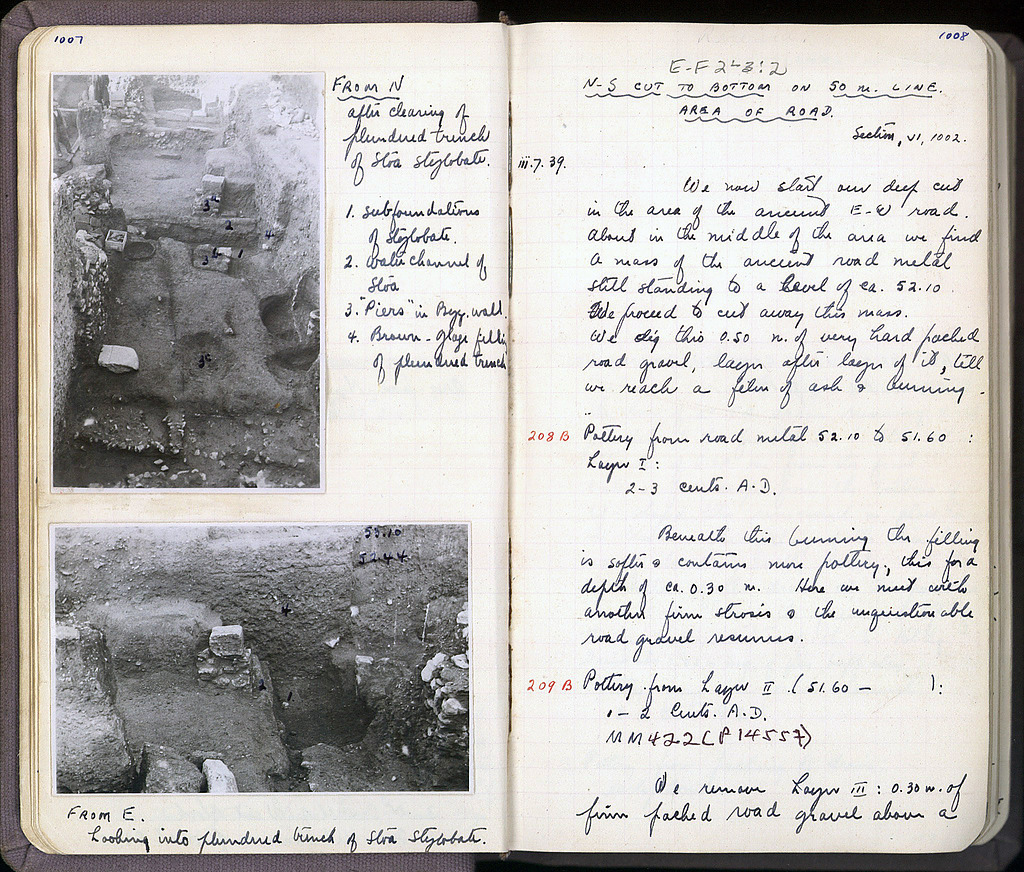 1007
FROM N
after clearing of
plundred trench
of Stoa Stylobate.
1. subfoundations
of Stylobate.
2. water channel of
Stoa
3. "Piers" in Byz. wall.
4. Brown-grage filli
of plundred trench
3
2
4
3
1
3
53.10
52.44
4
2
1
FROM E.
Looking into plundred trench of Stoa Stylobate.
1008
E-F 2-3:2
N-S CUT TO BOTTOM ON 50 M. LINE.
AREA OF ROAD.
Section, VI, 1002.
iii.7.39.
We now start our deep cut
in the area of the ancient E-W road.
About in the middle of the area we find
a mass of the ancient road metal
still standing to a level of ca. 52.10.
We proceed to cut away this mass.
We dig this 0.50 m. of very hard packed
road gravel, layer after layer of it, till
we reach a film of ash & burning.
208 B Pottery from road metal 52.10 to 51.60 :
Layer I :
2-3 cents. A.D.
Beneath this burning the filling
is softer & contains more pottery; this for a
depth of ca. 0.30 m. Here we meet with
another firm strosis & the unquestionable
road gravel resumes.
209 B Pottery from Layer II (51.60 - ):
1-2 Cents. A.D.
MM422 (P14557)
We remove Layer III : 0.30 m. of
firm packed road gravel above a